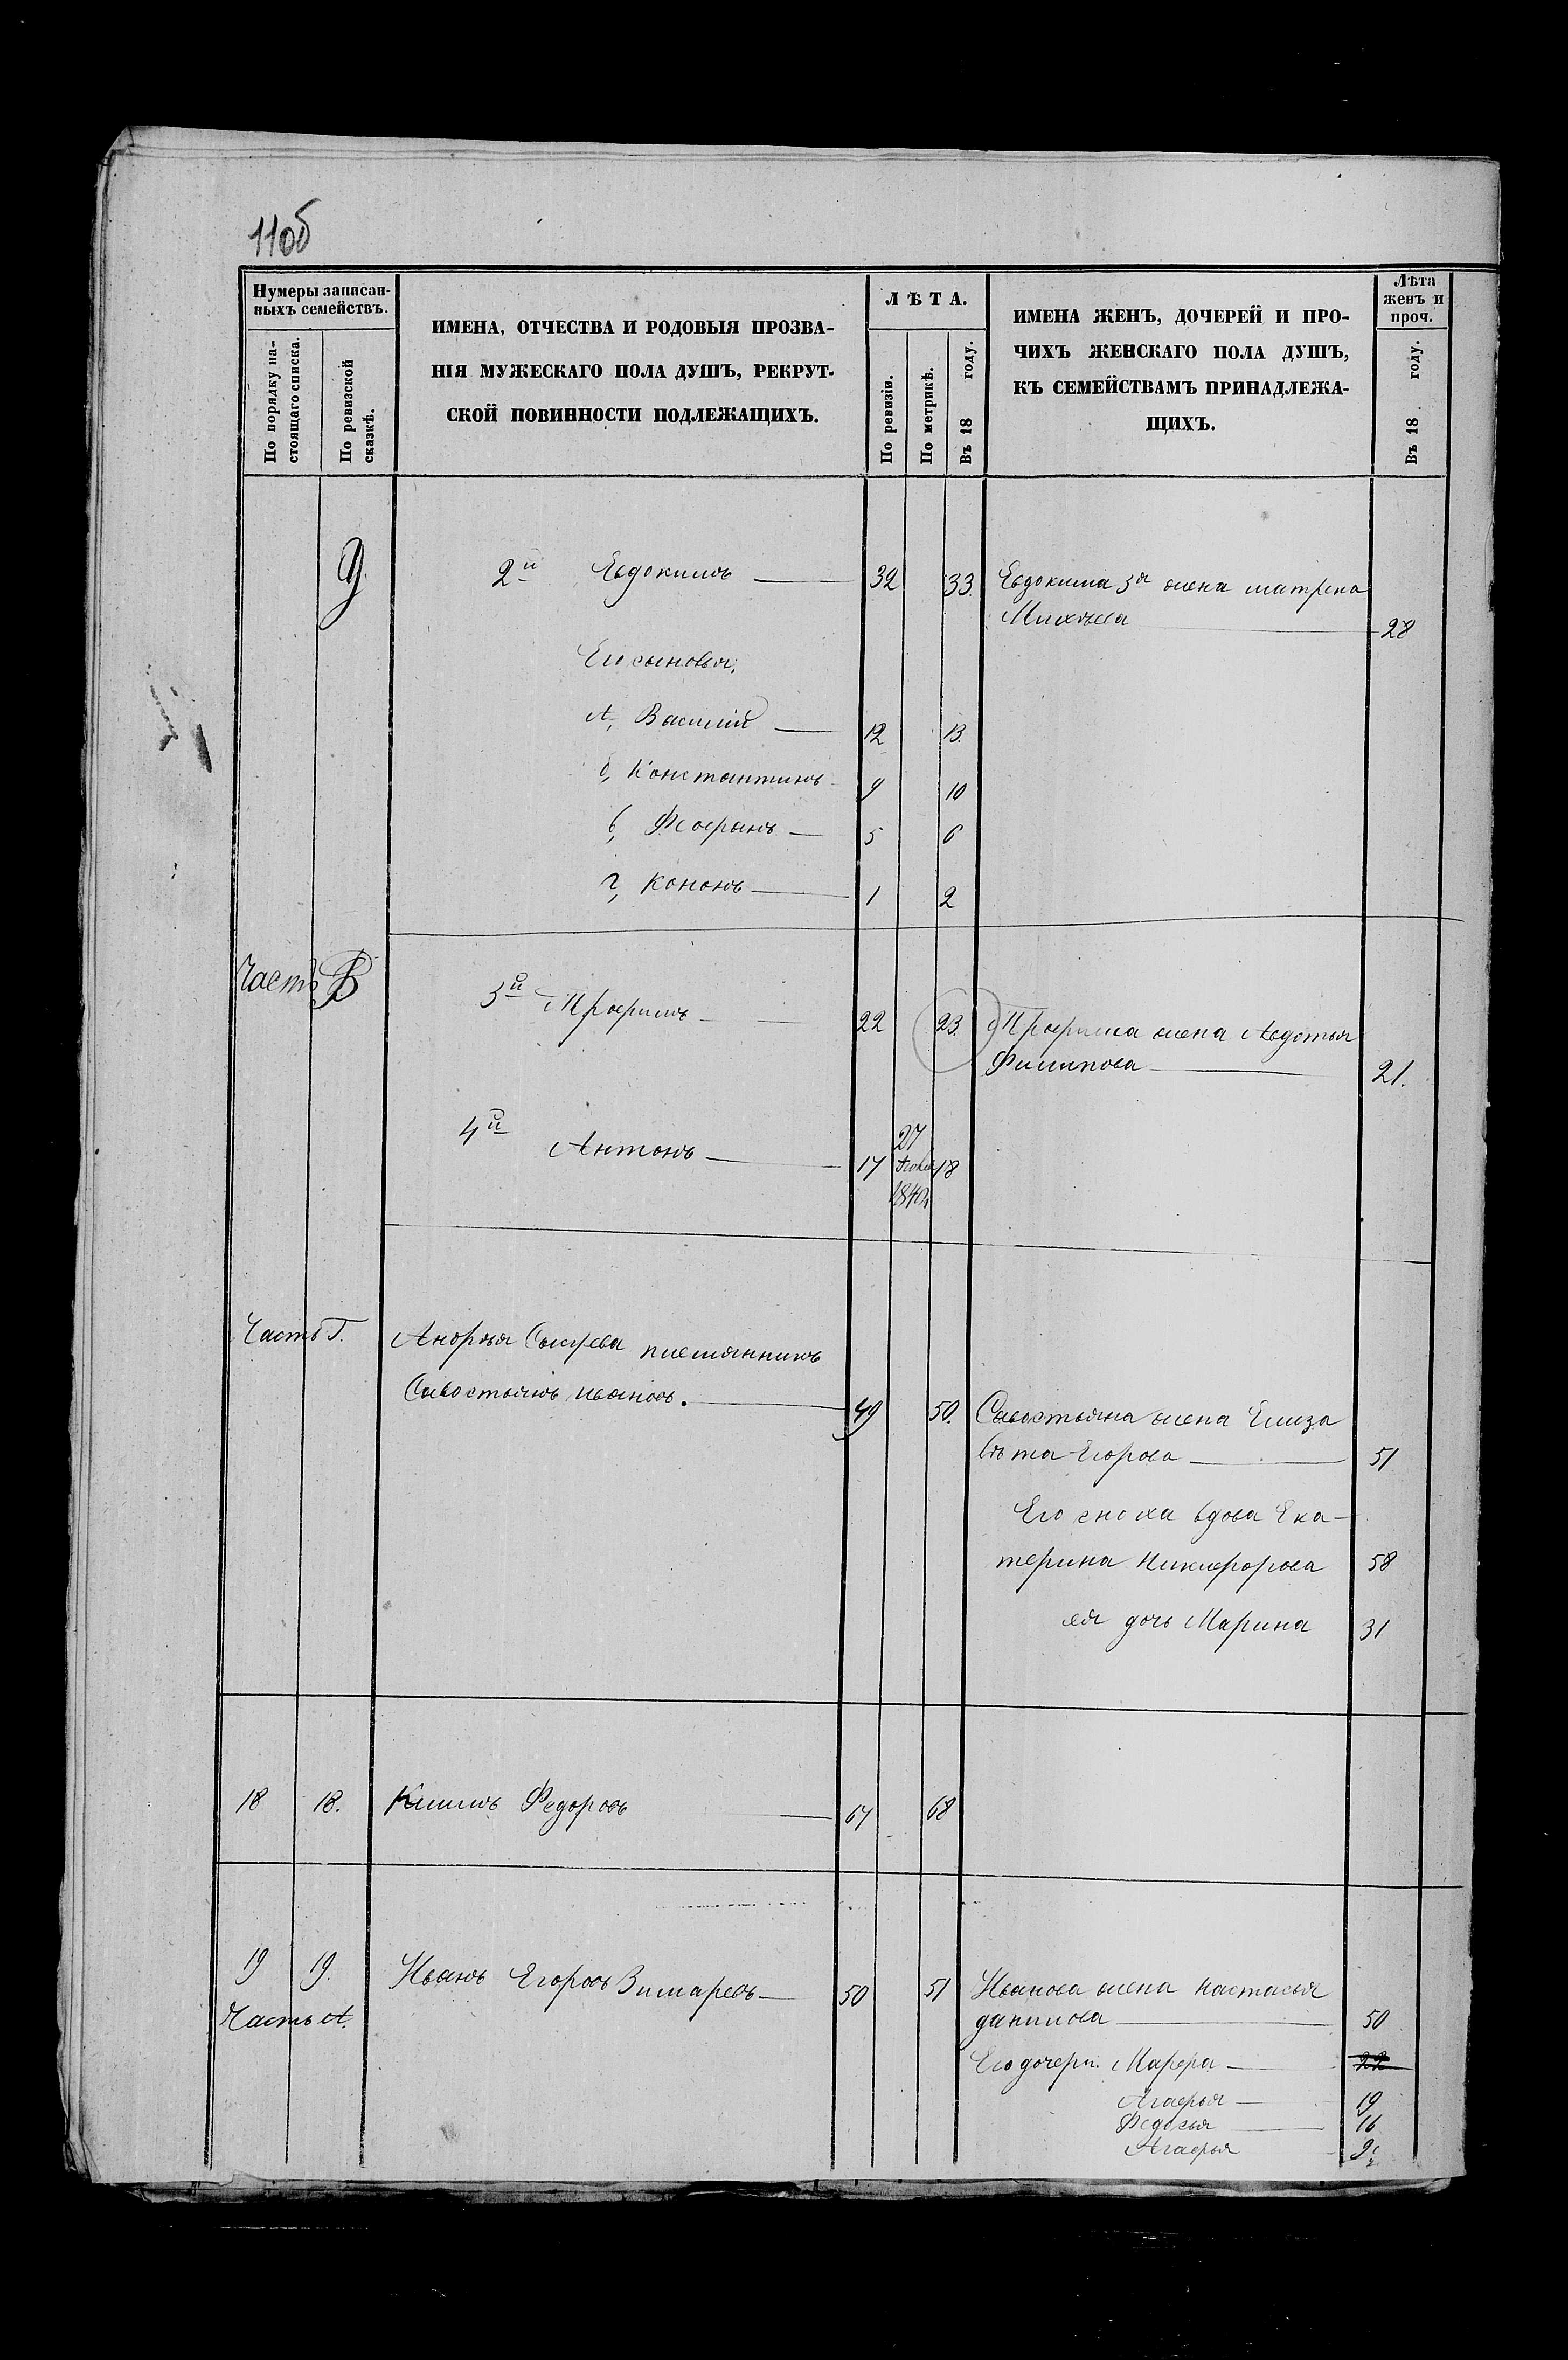 110б
Нумеры записан-
ныхъ семействъ.
По порядку на-
стоящаго списка.
По ревизской
сказкѣ.
ИМЕНА, ОТЧЕСТВА И РОДОВЫЯ ПРОЗВА-
НІЯ МУЖЕСКАГО ПОЛА ДУШЪ, РЕКРУТ-
СКОЙ ПОВИННОСТИ ПОДЛЕЖАЩИХЪ.
ЛѢТА.
По ревизіи.
По метрикѣ.
Въ 18 году.
ИМЕНА ЖЕНЪ, ДОЧЕРЕЙ И ПРО-
ЧИХЪ ЖЕНСКАГО ПОЛА ДУШЪ,
КЪ СЕМЕЙСТВАМЪ ПРИНАДЛЕЖА-
ЩИХЪ.
Лѣта
женъ и
проч.
Въ 18 году.
2й Евдокимъ 32 33.
Евдокима 3я жена матрена
28
Его сыновья:
А, Василій 12 13.
б, Константинъ 9 10
в, Феофанъ 5 6
г, Кононъ 1 2
Часть В
3й Трофимъ 22 23.
Трофима жена Авдотья
Филипова 21.
4й Антонъ 17 27 18
1840
Часть Г.
племянникъ
Савостьянъ Ивановъ. 49 50.
Савостьяна жена Елиза
вѣта Егорова 51
Его сноха вдова Ека-
терина Никифорова 58
ея дочь Марина 31
18 18. Климъ Федоровъ 67 68
19 19. Иванъ Егоровъ Зимаревъ 50 51
Часть А.
Иванова жена Настасья
данилова 50
Его дочери: Марфа 22
Агафья 19
Федосья 16
Агафья